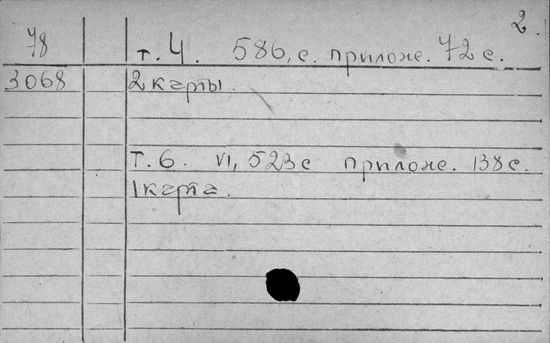 2.
78 т. 4. 586, с. прилож. 72 с.
3068 2 карты.
Т. 6. VI, 523 с прилож. 138 с.
1 карта.